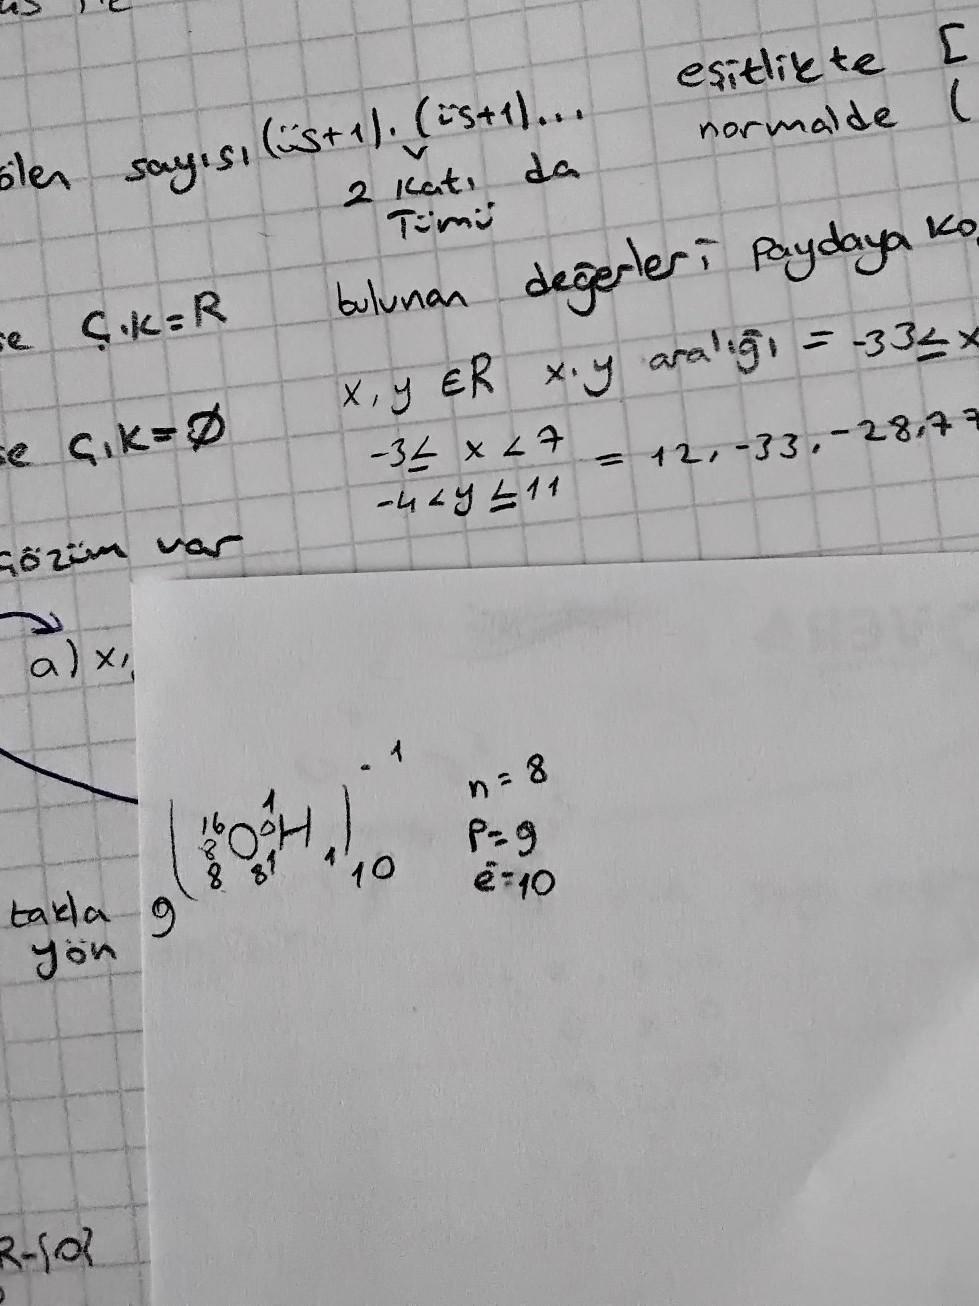 eşitlikte [
ölen sayısı (üs+1). (üs+1)... normalde (
2 katı da
Tümü
bulunan değerleri Paydaya
Ç.K=R
x,y ∈R x.y aralığı = -33≤ x
Ç.K=Ø
-3≤ x < 7
-4 < y ≤ 11 = 12, -33, -28, 77
çözüm var
a) x,
(16 8 8 O 8 1 0 1 H 1)-1 10
9
n = 8
P = 9
ē = 10
takla
yön
R-{0}